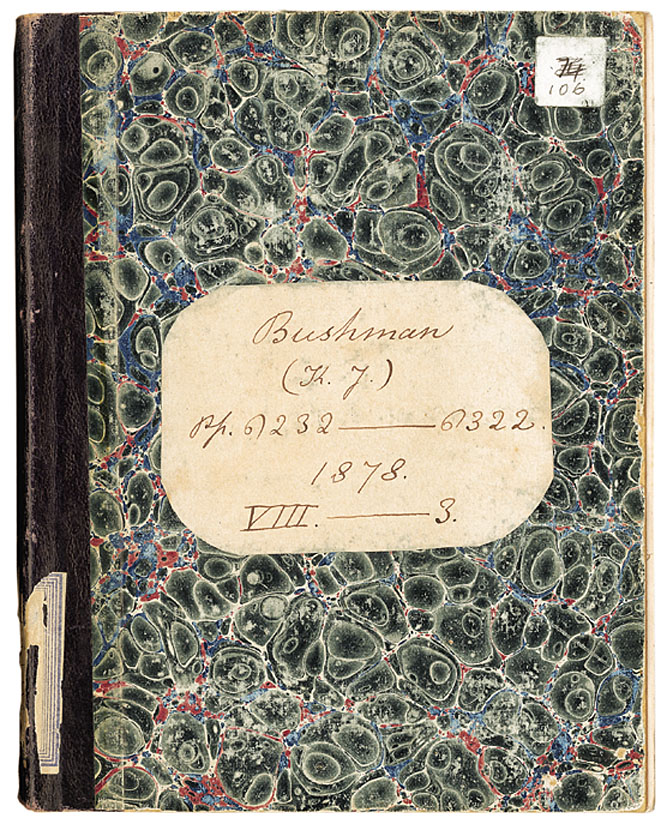 106
Bushman
(K. J.)
pp. 6232 — 6322.
1878.
VIII. — 3.